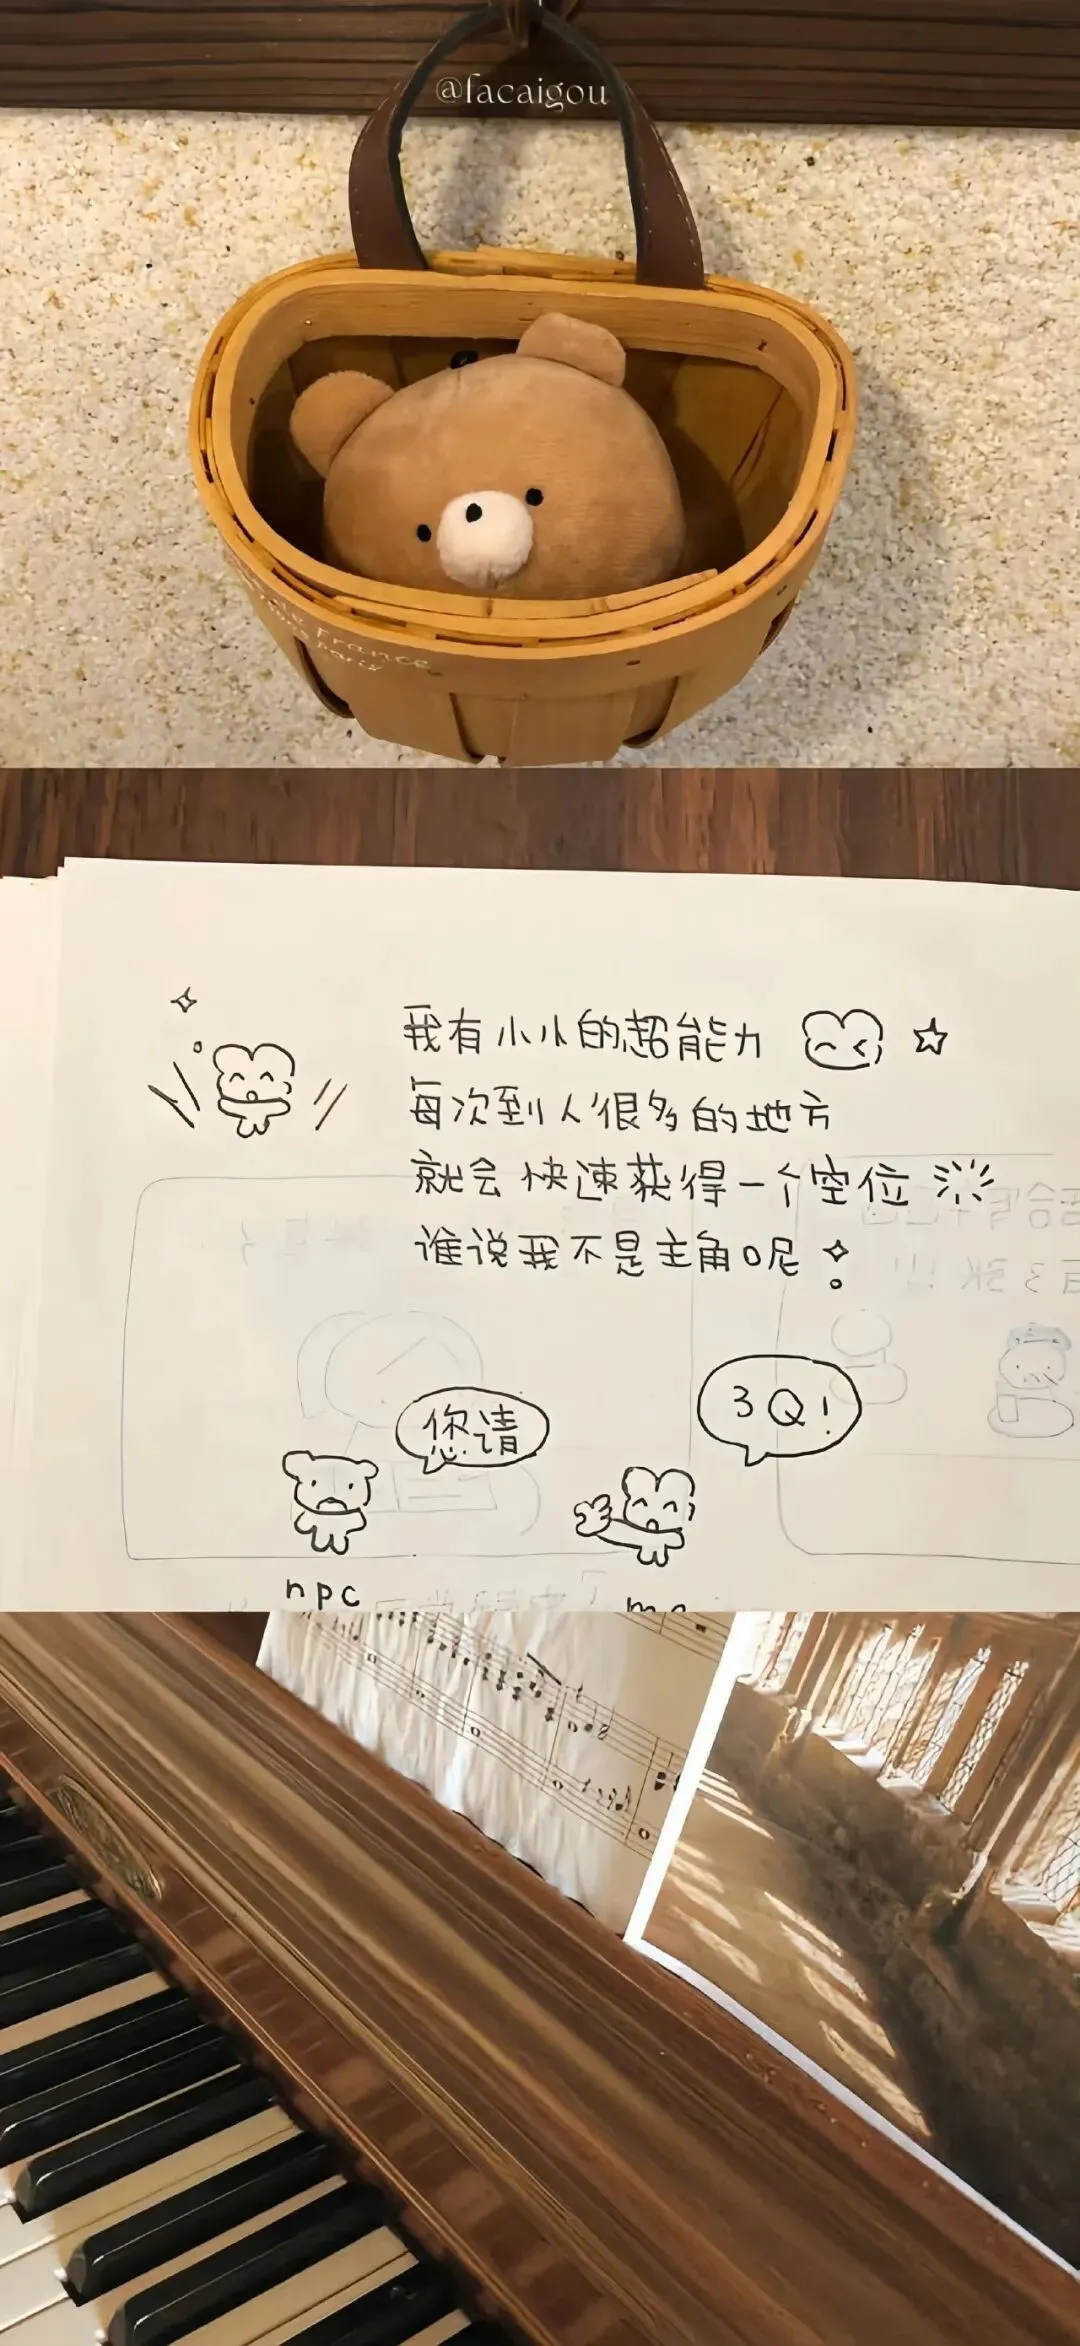 @facaigou
France
Paris
我有小小的超能力
每次到人很多的地方
就会快速获得一个空位
谁说我不是主角呢
您请
3Q!
npc
me